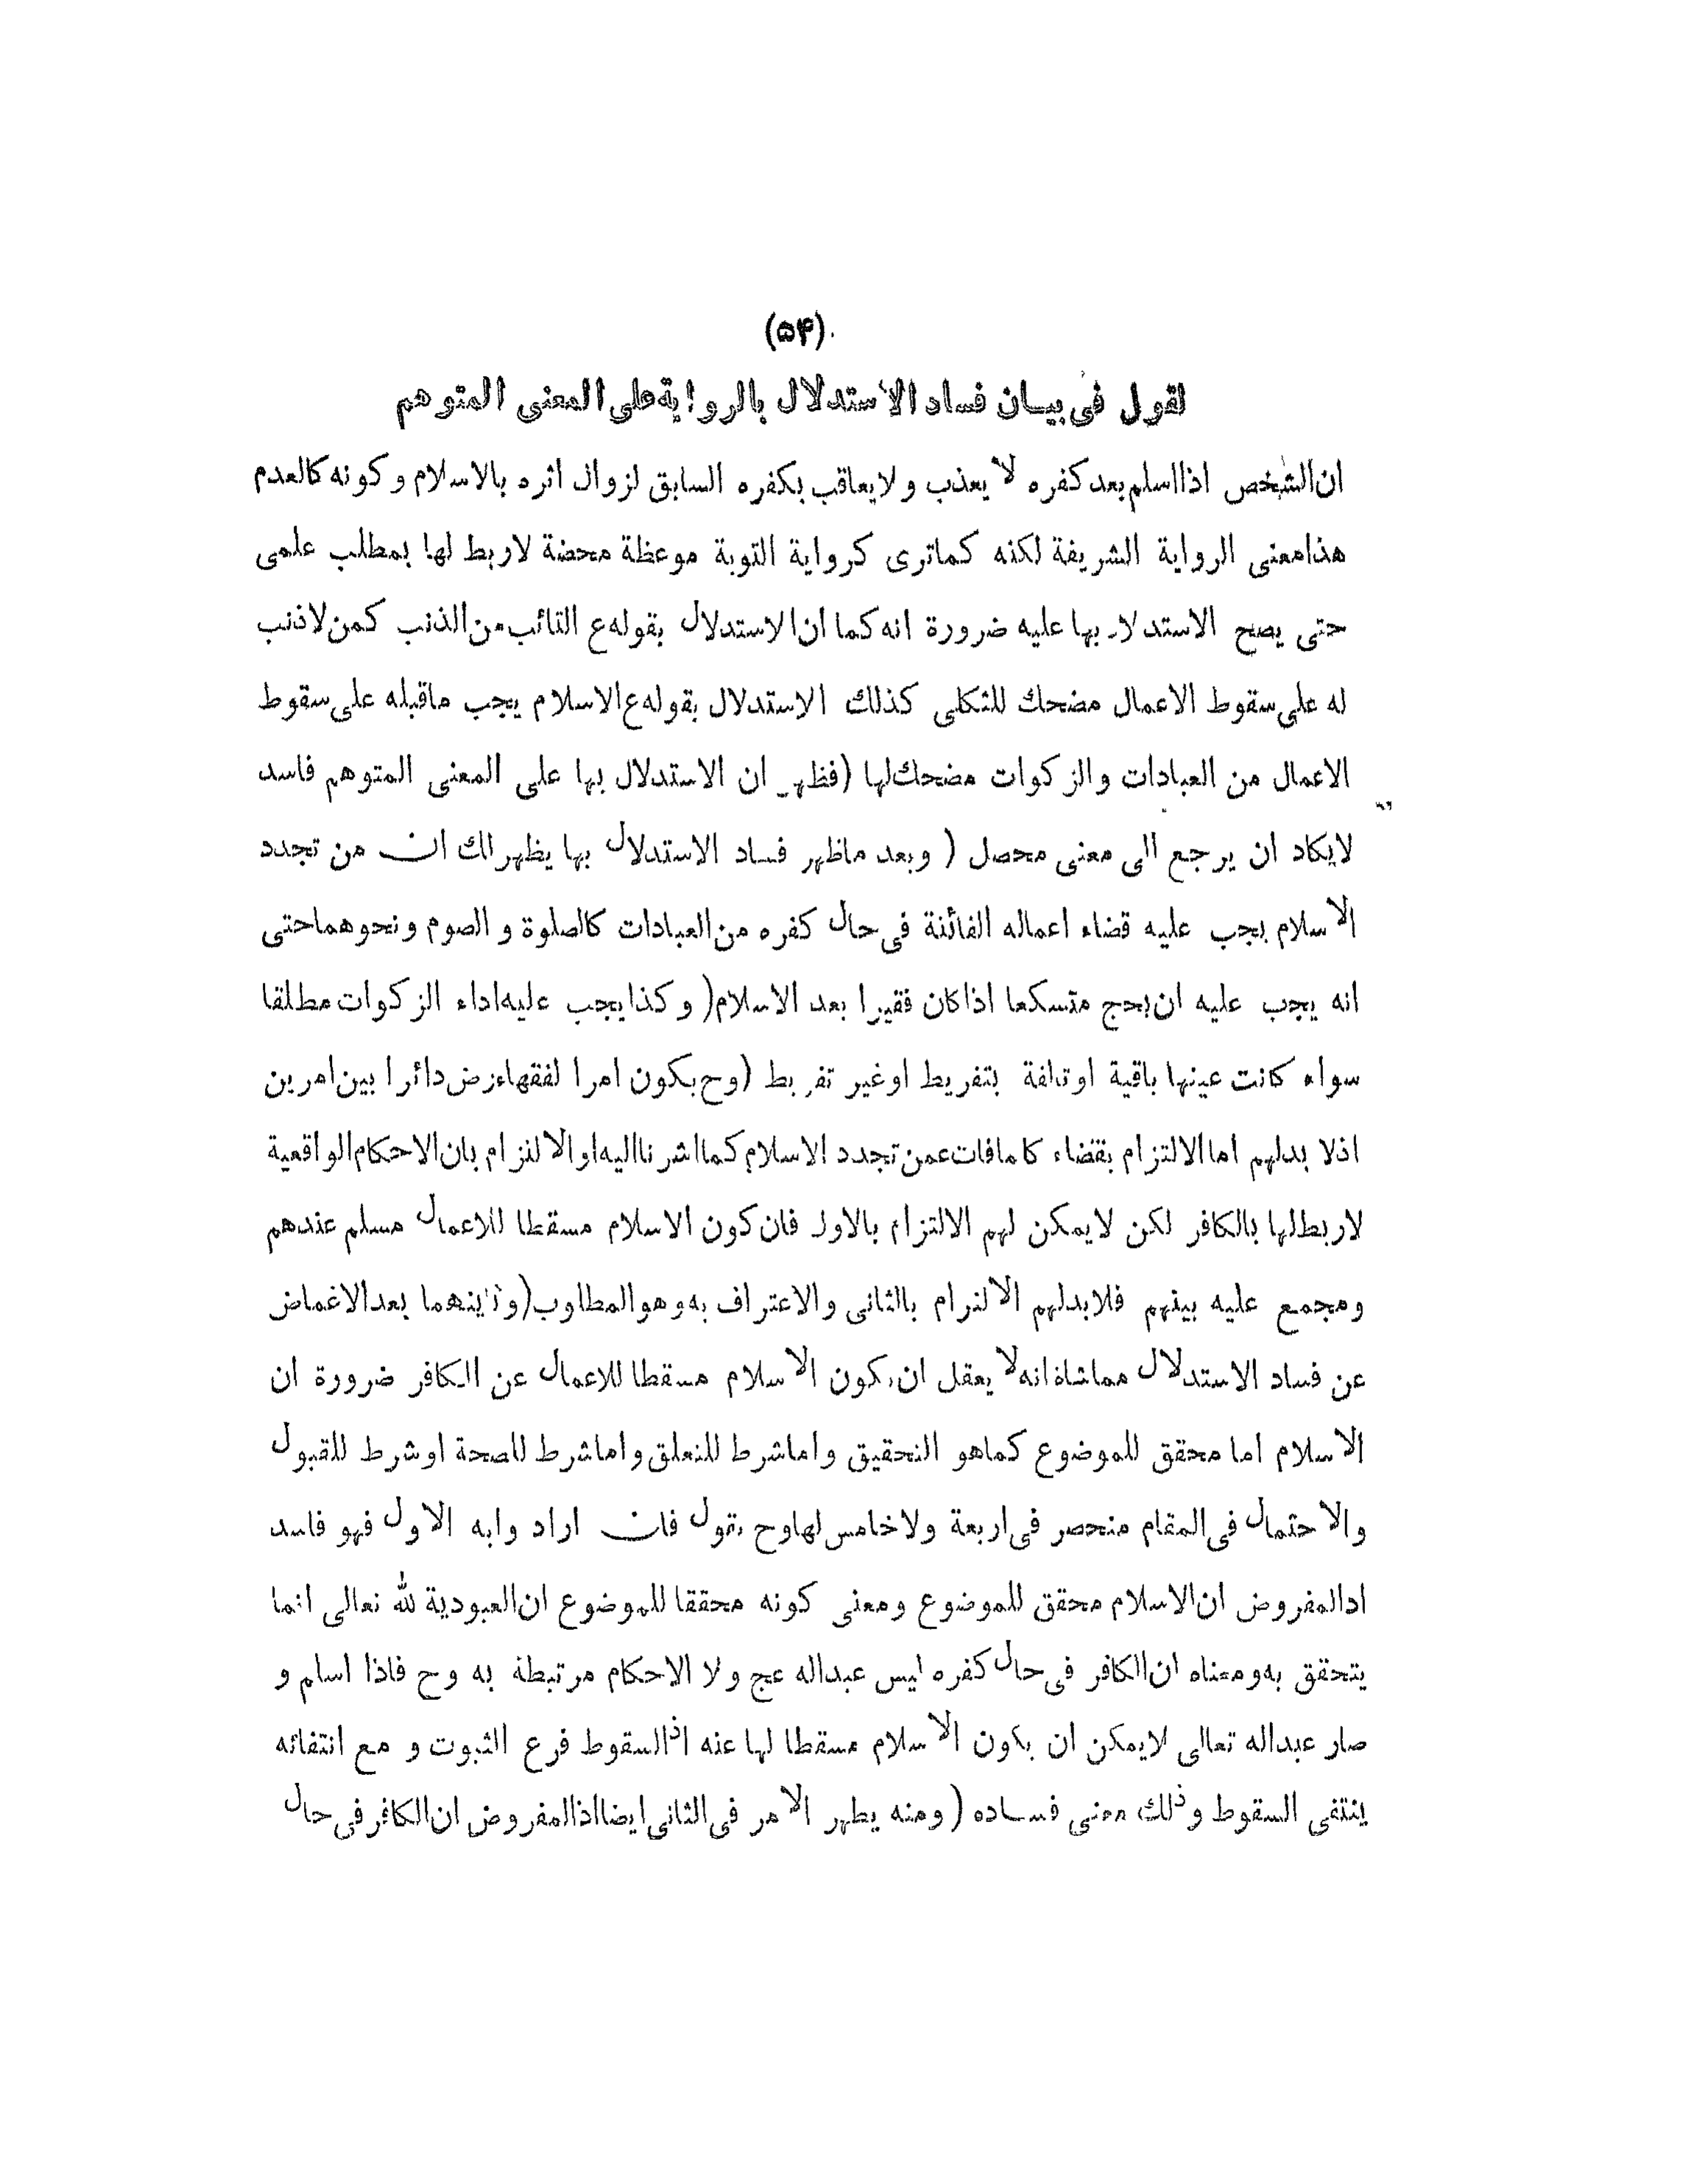 (۵۴)
لقول فی بیــان فساد الاستدلال بالروایة علی المعنی المتوهم
ان الشخص اذا اسلم بعد کفره لا یعذب ولا یعاقب بکفره السابق لزوال اثره بالاسلام وکونه کالعدم
هذا معنی الروایة الشریفة لکنه کماتری کروایة التوبة موعظة محضة لاربط لها بمطلب علمی
حتی یصح الاستدلال بها علیه ضرورة انه کما ان الاستدلال بقوله ع التائب من الذنب کمن لاذنب
له علی سقوط الاعمال مضحك للثکلی کذلك الاستدلال بقوله ع الاسلام یجب ماقبله علی سقوط
الاعمال من العبادات والزکوات مضحك لها (فظهر ان الاستدلال بها علی المعنی المتوهم فاسد
لایکاد ان یرجع الی معنی محصل ( وبعد ماظهر فساد الاستدلال بها یظهر لك ان من تجدد
الاسلام یجب علیه قضاء اعماله الفائتة فی حال کفره من العبادات کالصلوة و الصوم ونحوهما حتی
انه یجب علیه ان یحج متسکعا اذا کان فقیرا بعد الاسلام( وکذا یجب علیه اداء الزکوات مطلقا
سواء کانت عینها باقیة او تالفة بتفریط اوغیر تفریط (وح یکون امرا لفقهاء رض دائرا بین امرین
اذلا بدلهم اما الالتزام بقضاء کامافات عمن تجدد الاسلام کما اشرنا الیه او الالتزام بان الاحکام الواقعیة
لاربط لها بالکافر لکن لایمکن لهم الالتزام بالاول فان کون الاسلام مسقطا للاعمال مسلم عندهم
ومجمع علیه بینهم فلابدلهم الالتزام بالثانی والاعتراف به وهو المطلوب(وثانیهما بعد الاغماض
عن فساد الاستدلال مماشاة انه لا یعقل ان یکون الاسلام مسقطا للاعمال عن الکافر ضرورة ان
الاسلام اما محقق للموضوع کماهو التحقیق واما شرط للتعلق واما شرط للصحة اوشرط للقبول
والاحتمال فی المقام منحصر فی اربعة ولا خامس لها وح نقول فان اراد وابه الاول فهو فاسد
اذالمفروض ان الاسلام محقق للموضوع ومعنی کونه محققا للموضوع ان العبودیة لله تعالی انما
یتحقق به ومعناه ان الکافر فی حال کفره لیس عبداله عج ولا الاحکام مرتبطة به وح فاذا اسلم و
صار عبداله تعالی لایمکن ان یکون الاسلام مسقطا لها عنه اذالسقوط فرع الثبوت و مع انتفائه
ینتفی السقوط وذلك معنی فساده ( ومنه یظهر الامر فی الثانی ایضا اذالمفروض ان الکافر فی حال